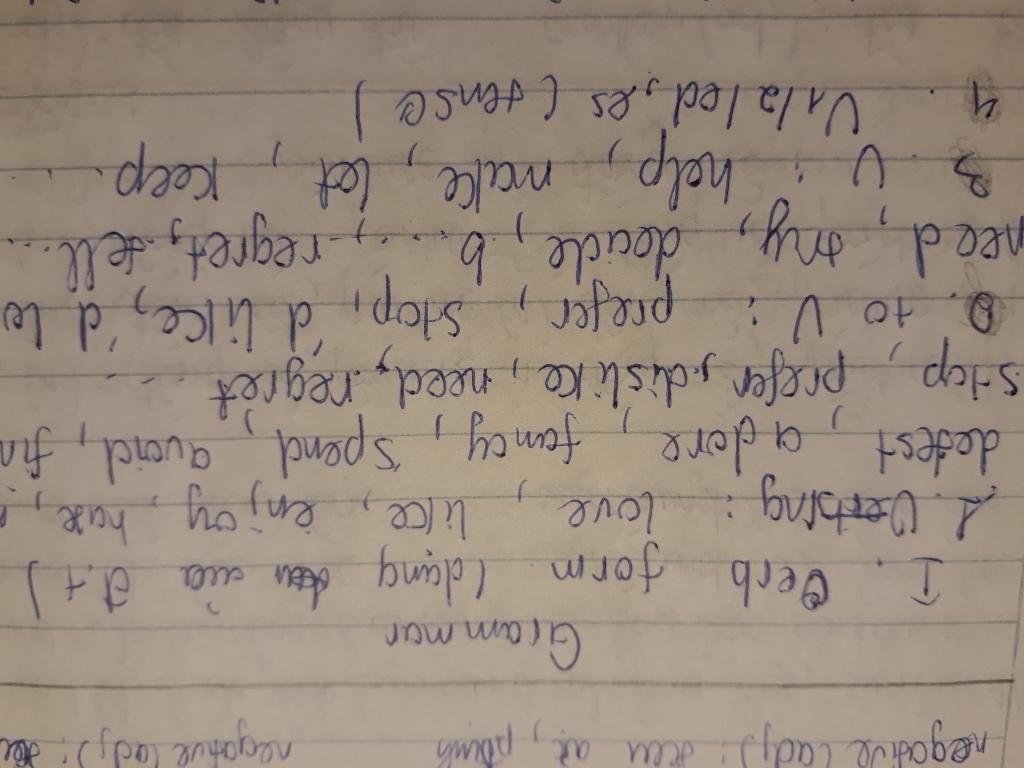 negative (adj): negative (adj):
Grammar
I. Verb form (dạng của đ.t)
1. Ving: love, like, enjoy, hate,
detest, adore, fancy, spend, avoid, fin
stop, prefer, dislike, need, regret ...
2. to V: prefer, stop, 'd like, 'd lo
need, try, decide, b ..., regret, tell ...
3. V: help, make, let, keep ....
4. V1/2/ed, es (tense)